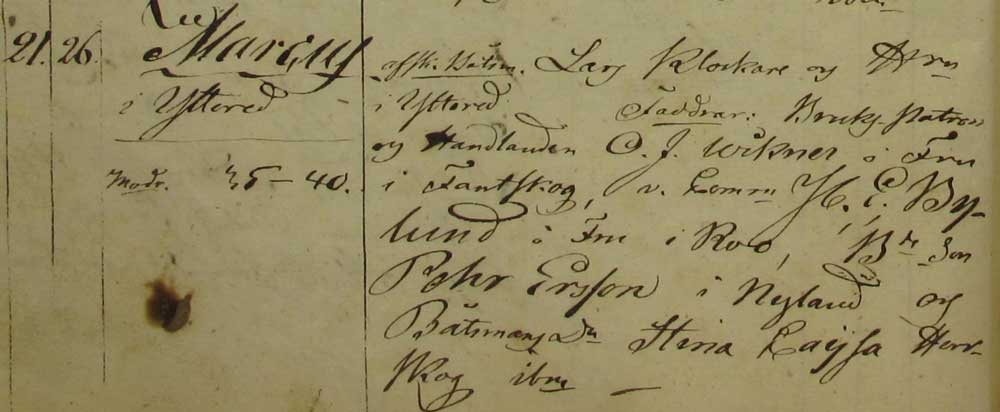 21. 26. Marcus
i Yttered
Modr. 35–40.
afsk. Båtsm. Lars Klockare og Hru
i Yttered Faddrar: Bruks Patron
og Handlanden C. J. Wikner o Fru
i Fantskog, v. Comm H. E. By-
lund o Fru i Roo, Bde Son
Pehr Ersson i Nyland og
Båtsmans Dr Stina Caijsa Herr-
skog ibm –